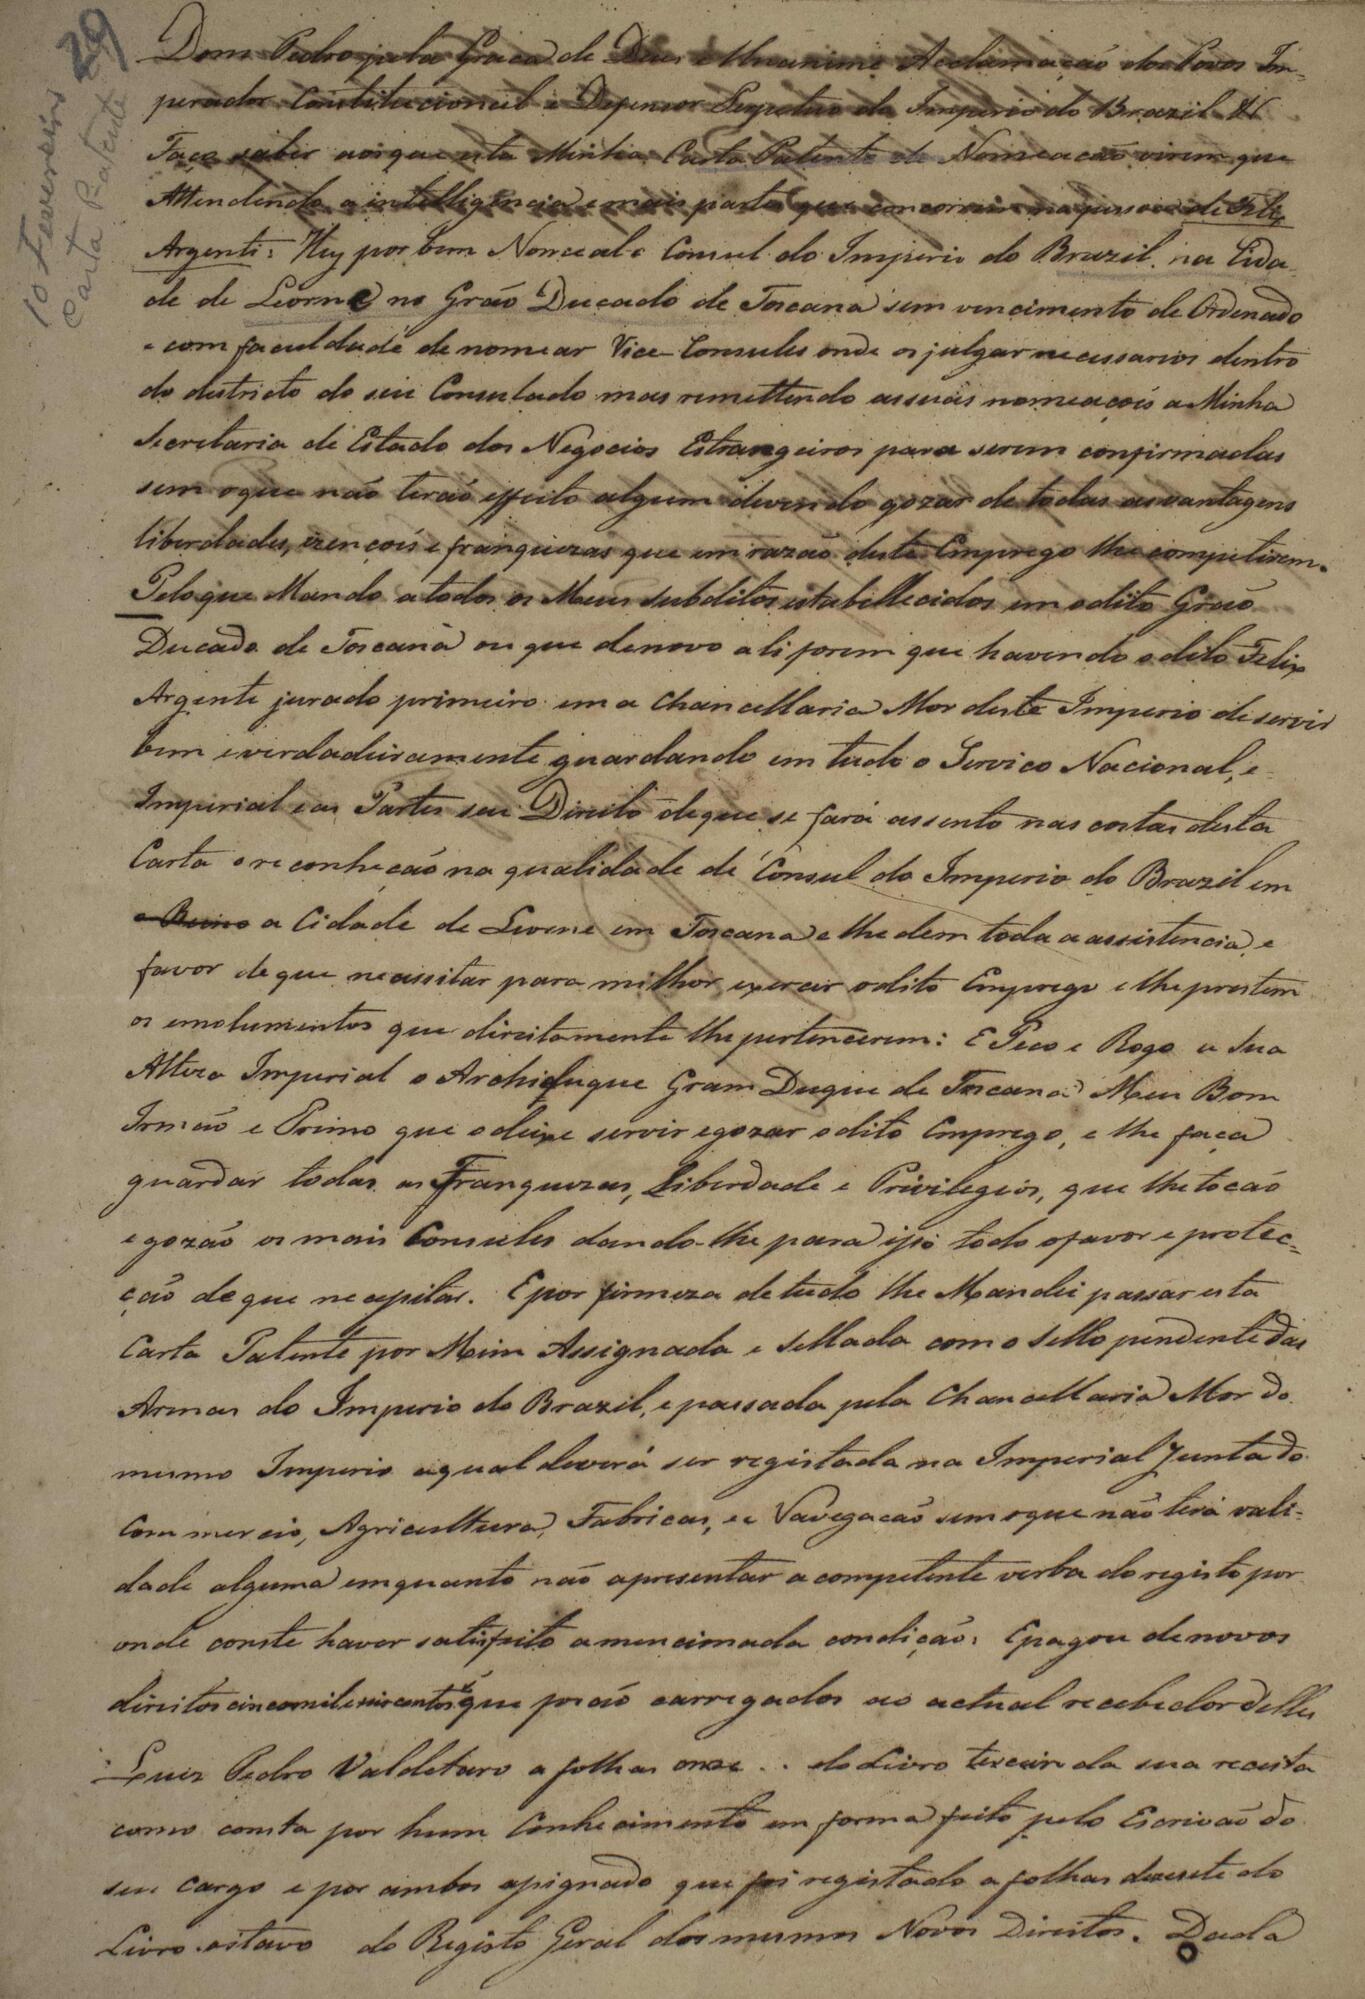 29
10 Fevereiro
Carta Patente
Dom Pedro pela Graça de Deus e Unanime Acclamação dos Povos Im-
perador Constitucional e Defensor Perpetuo do Imperio do Brazil &
Faço saber aos que esta Minha Carta Patente de Nomeação virem que
Attendendo a intelligencia e mais partes que concorrem na pessoa de Felix
Argenti: Hey por bem Nomeal-o Consul do Imperio do Brazil na Cida-
de de Leorne no Grão Ducado de Toscana sem vencimento de Ordenado
e com faculdade de nomear Vice-Consules onde os julgar necessarios dentro
do destricto do seu Consulado mas remettendo as suas nomeações a Minha
Secretaria de Estado dos Negocios Estrangeiros para serem confirmadas
sem o que não terão effeito algum devendo gozar de todas as vantagens
liberdades, izenções e franquezas que em razão deste Emprego lhe competirem.
Pelo que Mando a todos os Meus subditos estabellecidos em o dito Grão
Ducado de Toscana ou que de novo ali forem que havendo o dito Felix
Argente jurado primeiro em a Chancellaria Mor deste Imperio de servir
bem e verdadeiramente guardando em tudo o Serviço Nacional, e
Imperial e as Partes seu Direito de que se fará assento nas costas desta
Carta o reconheção na qualidade de Consul do Imperio do Brazil em
o Reino a Cidade de Leorne em Toscana e lhe dem toda a assistencia, e
favor de que necessitar para milhor exercer o dito Emprego e lhe prestem
os emolumentos que direitamente lhe pertencerem: E Peço e Rogo a Sua
Alteza Imperial o Archiduque Gram Duque de Toscana Meu Bom
Irmão e Primo que o deixe servir e gozar o dito Emprego, e lhe faça
guardar todas as Franquezas, Liberdade e Privilegios, que lhe tocão
e gozão os mais Consules dando-lhe para isso todo o favor e protec-
ção de que necessitar. E por firmeza de tudo lhe Mandei passar esta
Carta Patente por Mim Assignada e Sellada com o Sello pendente das
Armas do Imperio do Brazil, e passada pela Chancellaria Mor do
mesmo Imperio a qual deverá ser registada na Imperial Junta do
Commercio, Agricultura, Fabricas, e Navegação sem o que não terá vali-
dade alguma emquanto não apresentar a competente verba do registo por
onde conste haver satisfeito a mencionada condição: E pagou de novos
direitos cinco mil e seis centos rs que forão carregados ao actual recebedor delles
Luis Pedro Valdetaro a folhas onze .. do Livro terceiro da sua receita
como consta por hum Conhecimento em forma feito pelo Escrivão do
seu cargo e por ambos assignado que foi registado a folhas dezesete do
Livro oitavo do Registo Geral dos mesmos Novos Direitos. Dada